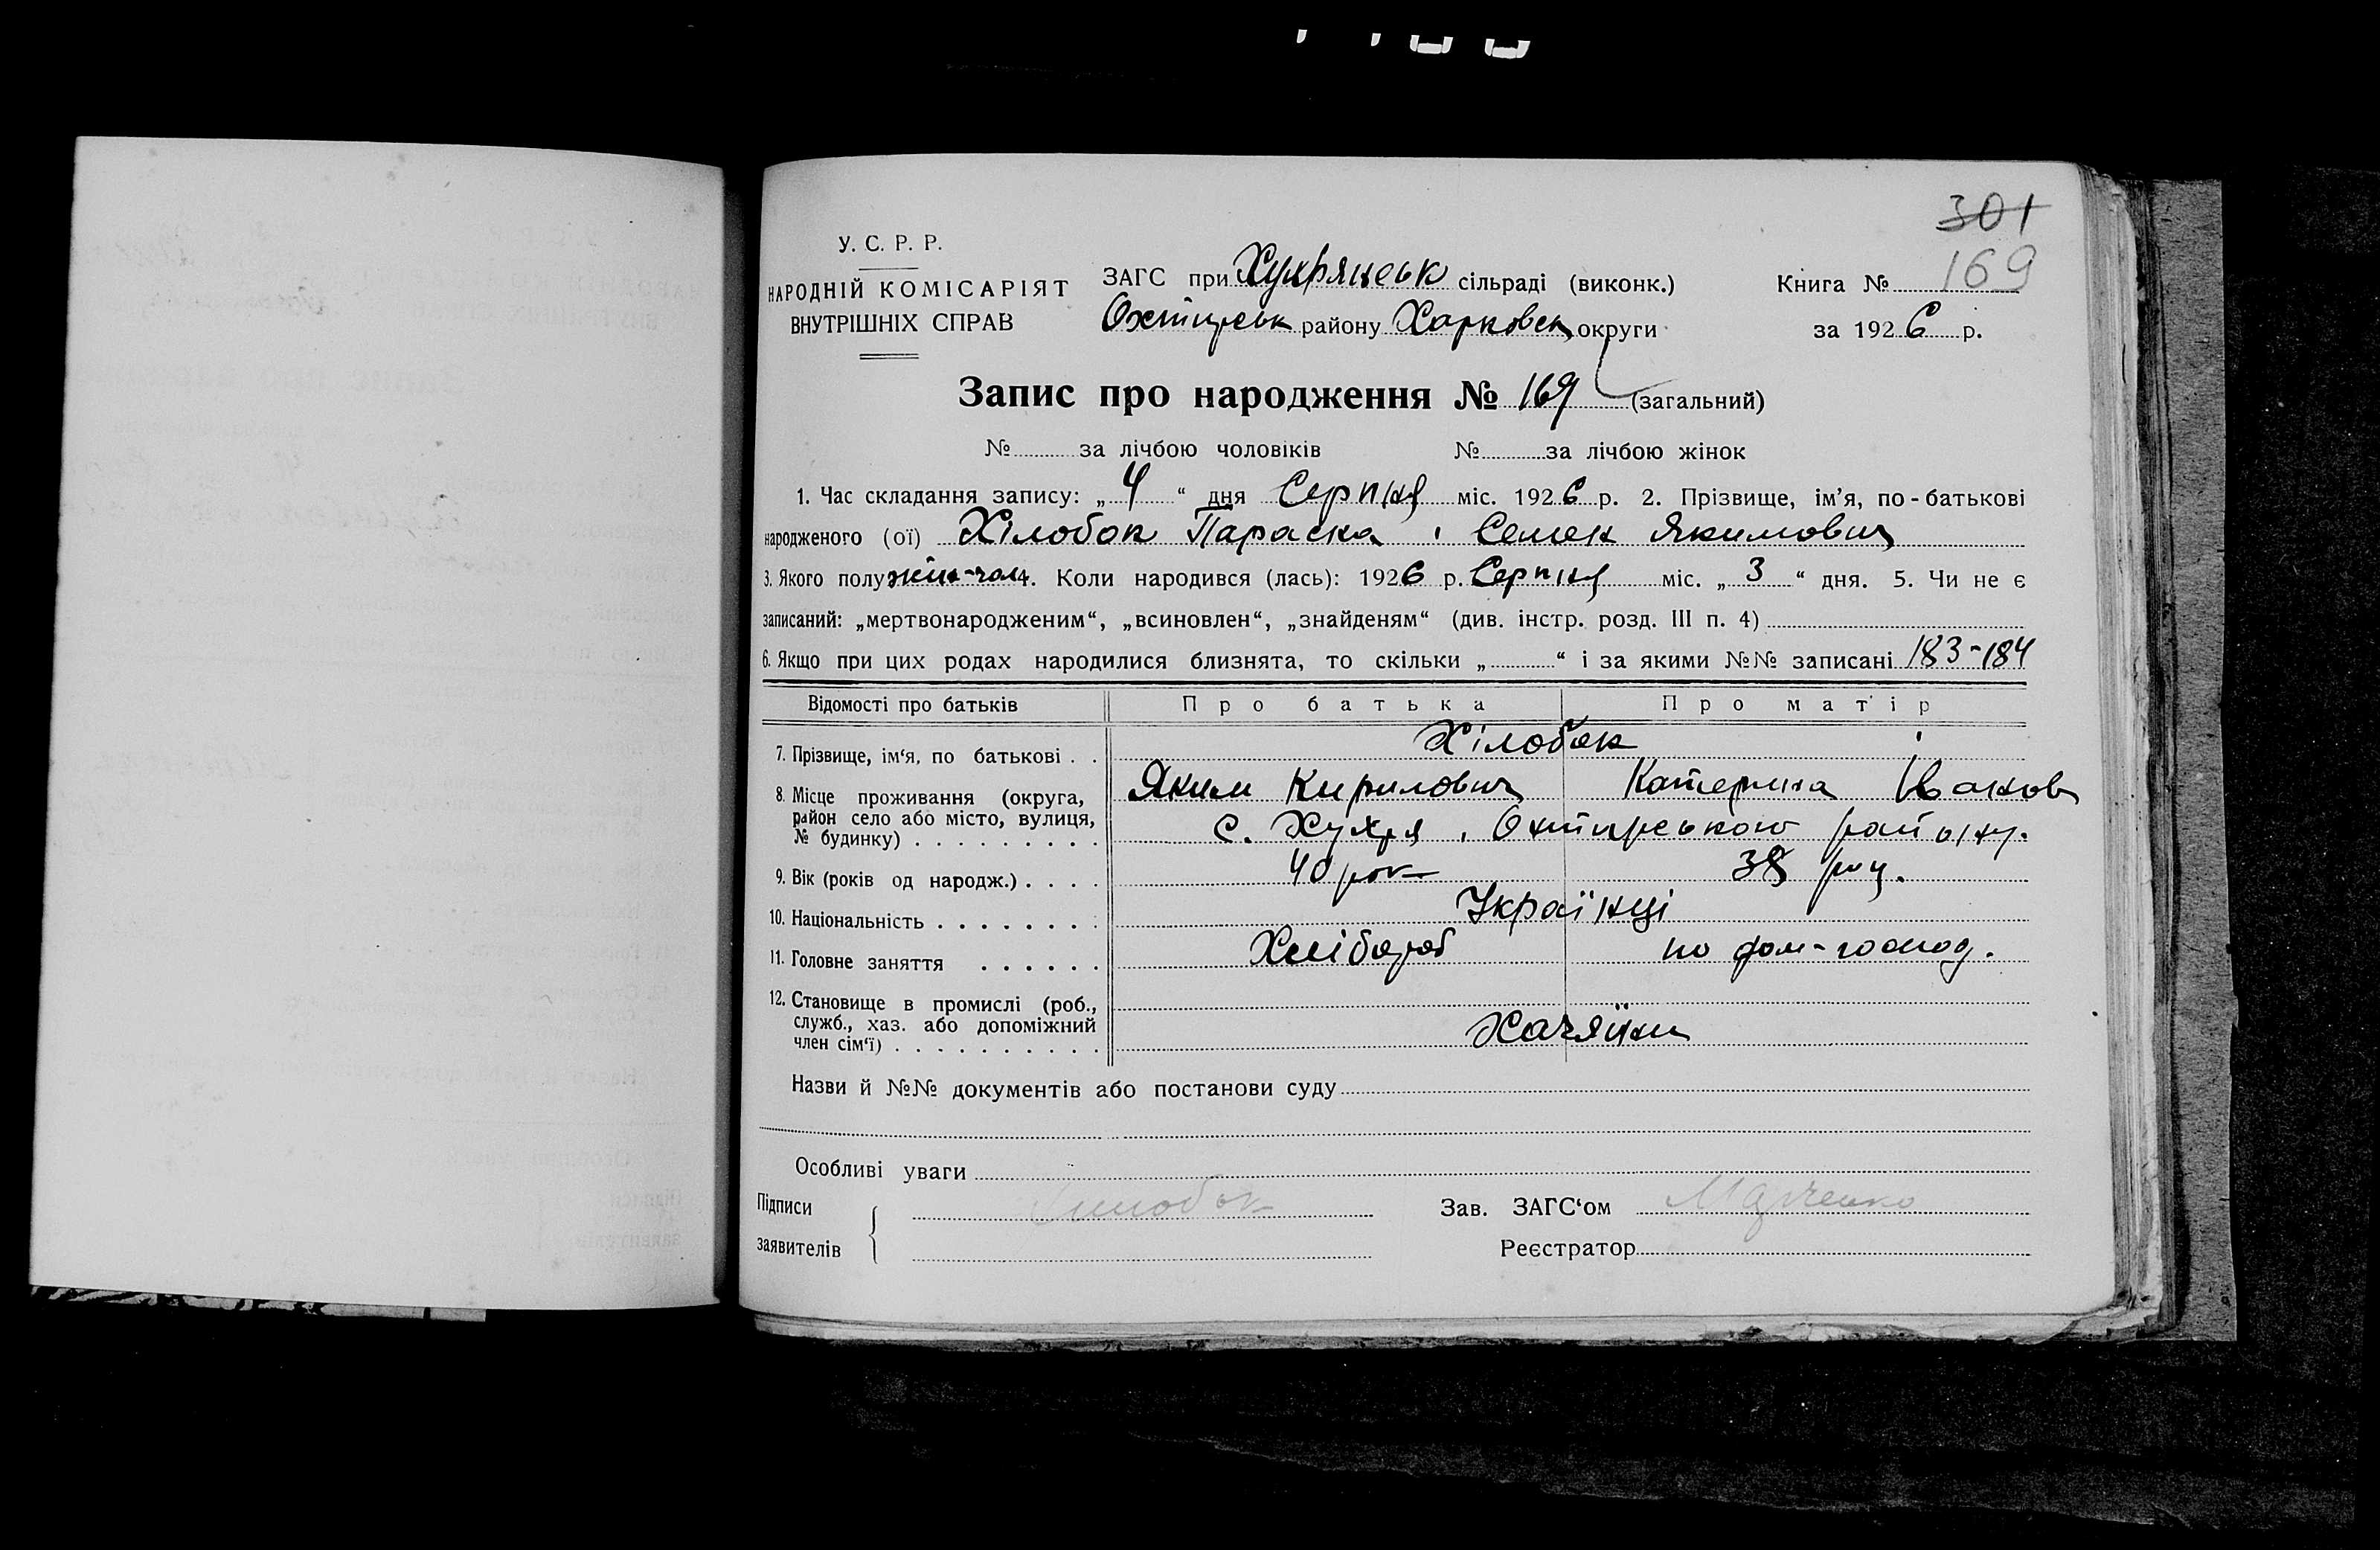 301
У. С. Р. Р.
НАРОДНІЙ КОМІСАРІЯТ
ВНУТРІШНІХ СПРАВ
ЗАГС при Хухрянськ сільраді (виконк.)
Охтирськ району Харковск округи
Книга № 169
за 1926 р.
Запис про народження № 169 (загальний)
№ за лічбою чоловіків № за лічбою жінок
1. Час складання запису: „4“ дня Серпня міс. 1926 р. 2. Прізвище, ім’я, по-батькові
народженого (ої) Хілобок Параска і Семен Якимович
3. Якого полу жін-чол 4. Коли народився (лась): 1926 р. Серпня міс. „3“ дня. 5. Чи не є
записаний: „мертвонародженим“, „всиновлен“, „знайденям“ (див. інстр. розд. III п. 4)
6. Якщо при цих родах народилися близнята, то скільки „ “ і за якими №№ записані 183-184
Відомості про батьків Про батька Про матір
7. Прізвище, ім‘я, по батькові . . Хілобок
Яким Кирилович Катерина Іванов
8. Місце проживання (округа,
район село або місто, вулиця,
№ будинку) . . . . . . . . . с. Хухря, Охтирського району.
9. Вік (років од народж.) . . . . 40 рок 38 роц.
10. Національність . . . . . . . . Українці
11. Головне заняття . . . . . . Хлібороб по дом-господ.
12. Становище в промислі (роб.,
служб., хаз. або допоміжний
член сім‘ї) . . . . . . . . . . Хазяїни
Назви й №№ документів або постанови суду
Особливі уваги
Підписи
заявителів
Хилобок
Зав. ЗАГС‘ом Марченко
Реєстратор